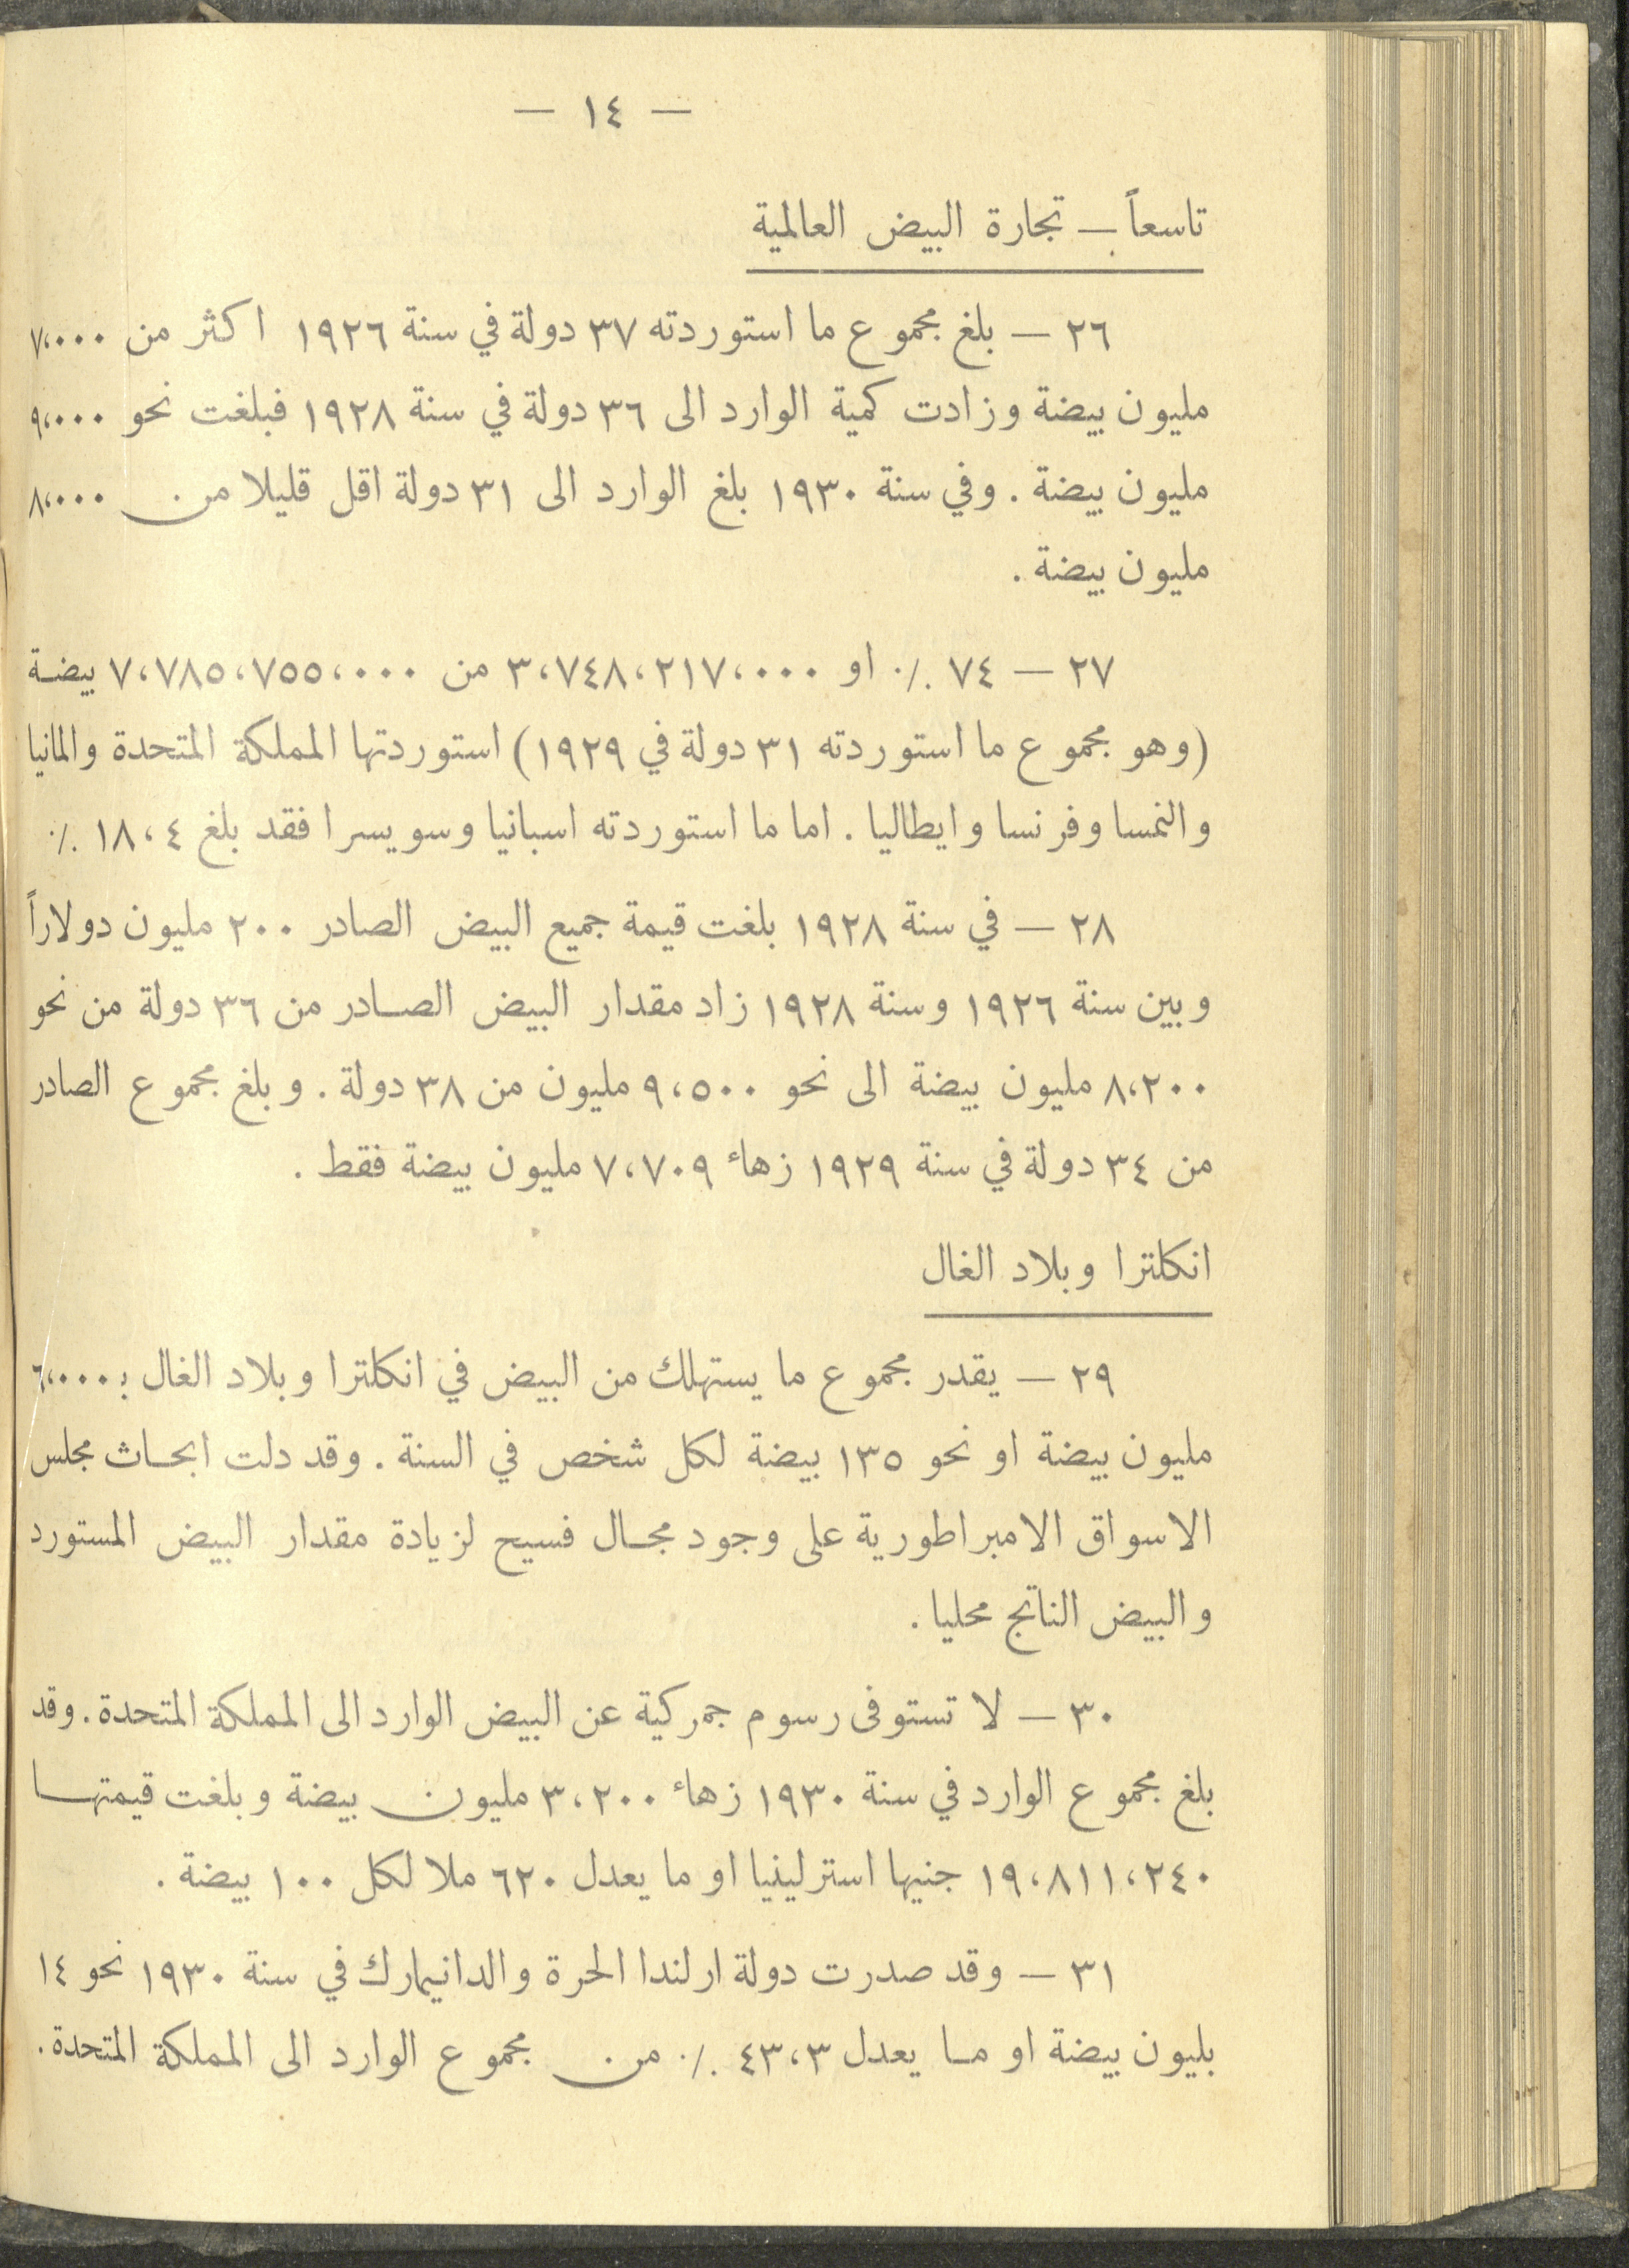 — ١٤ —
تاسعاً — تجارة البيض العالمية
٢٦ — بلغ مجموع ما استوردته ٣٧ دولة في سنة ١٩٢٦ اكثر من ٧،٠٠٠
مليون بيضة وزادت كمية الوارد الى ٣٦ دولة في سنة ١٩٢٨ فبلغت نحو ٩،٠٠٠
مليون بيضة . وفي سنة ١٩٣٠ بلغ الوارد الى ٣١ دولة اقل قليلا من ٨،٠٠٠
مليون بيضة .
٢٧ — ٧٤ ٪ او ٣،٧٤٨،٢١٧،٠٠٠ من ٧،٧٨٥،٧٥٥،٠٠٠ بيضة
(وهو مجموع ما استوردته ٣١ دولة في ١٩٢٩) استوردتها المملكة المتحدة والمانيا
والنمسا وفرنسا وايطاليا . اما ما استوردته اسبانيا وسويسرا فقد بلغ ١٨،٤ ٪
٢٨ — في سنة ١٩٢٨ بلغت قيمة جميع البيض الصادر ٢٠٠ مليون دولاراً
وبين سنة ١٩٢٦ وسنة ١٩٢٨ زاد مقدار البيض الصادر من ٣٦ دولة من نحو
٨،٢٠٠ مليون بيضة الى نحو ٩،٥٠٠ مليون من ٣٨ دولة . وبلغ مجموع الصادر
من ٣٤ دولة في سنة ١٩٢٩ زهاء ٧،٧٠٩ مليون بيضة فقط .
انكلترا وبلاد الغال
٢٩ — يقدر مجموع ما يستهلك من البيض في انكلترا وبلاد الغال بـ ٦،٠٠٠
مليون بيضة او نحو ١٣٥ بيضة لكل شخص في السنة . وقد دلت ابحاث مجلس
الاسواق الامبراطورية على وجود مجال فسيح لزيادة مقدار البيض المستورد
والبيض الناتج محليا .
٣٠ — لا تستوفى رسوم جمركية عن البيض الوارد الى المملكة المتحدة . وقد
بلغ مجموع الوارد في سنة ١٩٣٠ زهاء ٣،٢٠٠ مليون بيضة وبلغت قيمتها
١٩،٨١١،٢٤٠ جنيها استرلينيا او ما يعدل ٦٢٠ ملا لكل ١٠٠ بيضة .
٣١ — وقد صدرت دولة ارلندا الحرة والدانيمارك في سنة ١٩٣٠ نحو ١٤
بليون بيضة او ما يعدل ٤٣،٣ ٪ من مجموع الوارد الى المملكة المتحدة .